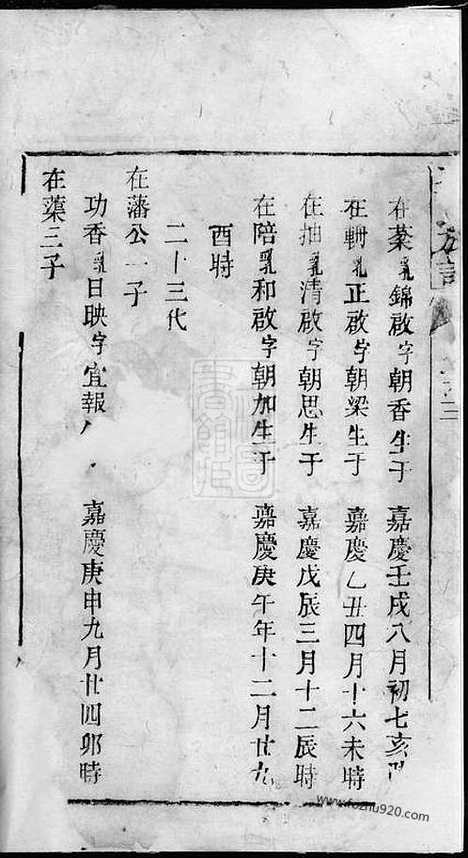 在棻乳錦啟字朝香生于 嘉慶壬戌八月初七亥時
在軵乳正啟字朝梁生于 嘉慶乙丑四月十六未時
在抽乳清啟字朝思生于 嘉慶戊辰三月十二辰時
在陪乳和啟字朝加生于 嘉慶庚午年十二月廿九
酉時
二十三代
在藩公一子
功香乳日映字宜報 嘉慶庚申九月廿四卯時
在蕖三子
www.fozhu920.com